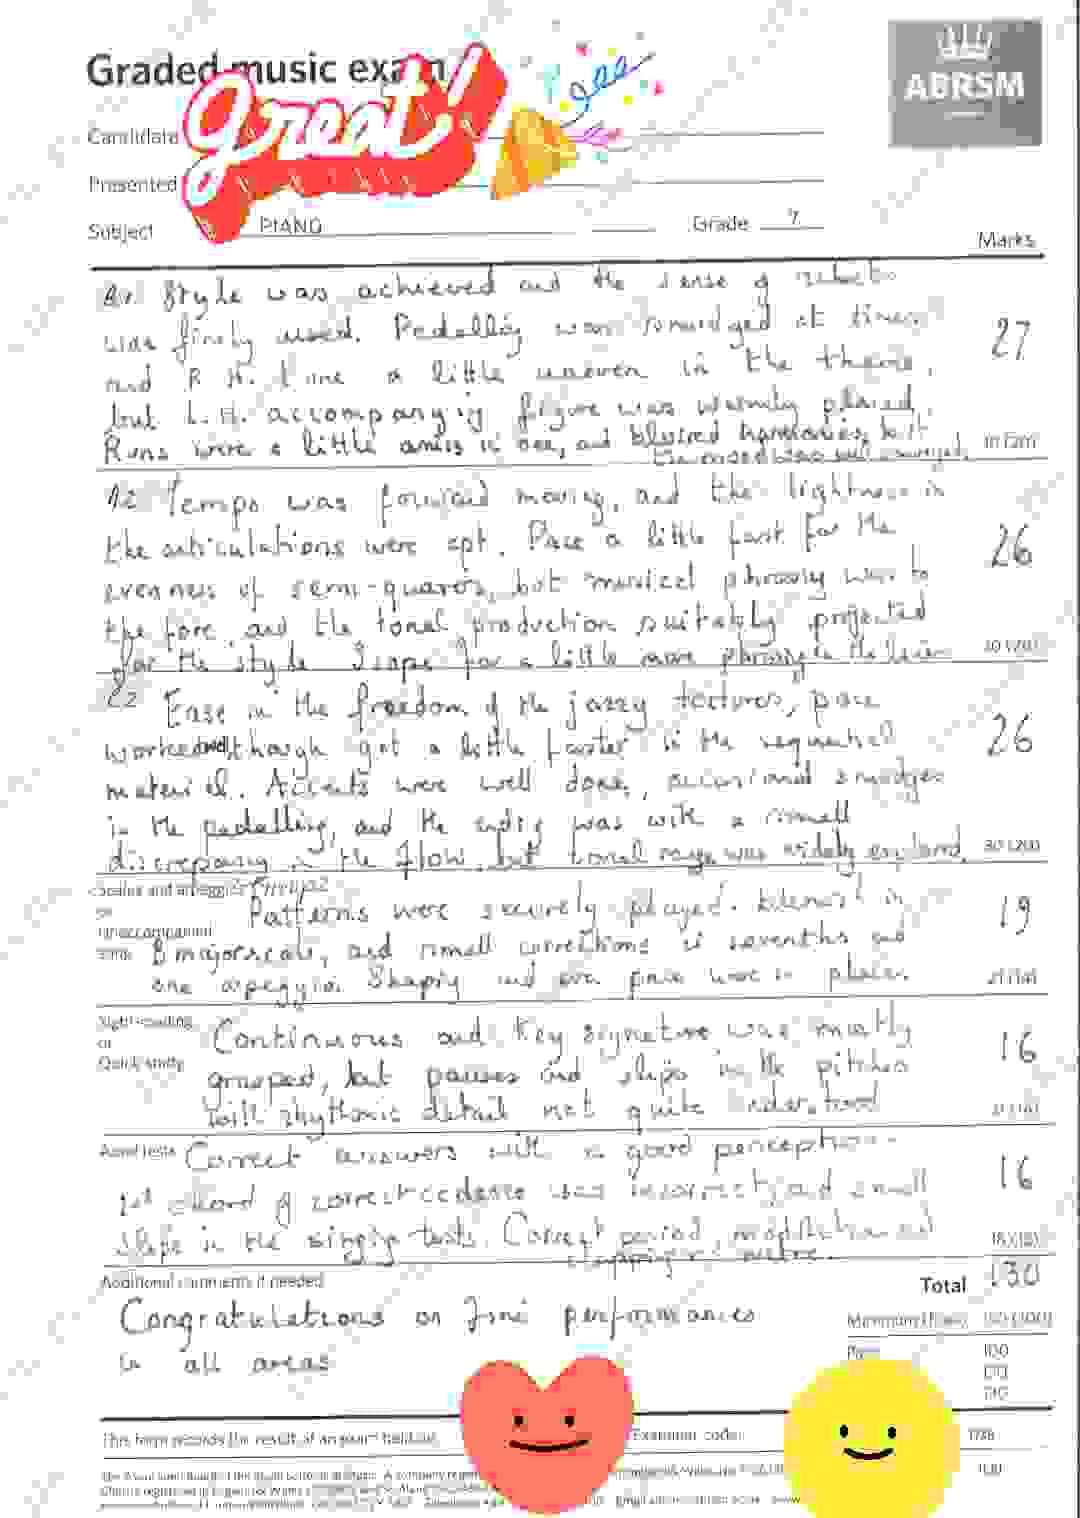 Graded music exam
Great!
ABRSM
Candidate
Presented
Subject PIANO Grade 7
Marks
Style was achieved and the sense of
was firmly used. Pedalling was smudged at times
and R.H. tone a little uneven in the theme,
but L.H. accompanying figure was warmly placed.
Runs were a little amiss in one, and blurred harmonies, but
27
A2 Tempo was forward moving, and the lightness in
the articulations were apt. Pace a little fast for the
evenness of semi-quavers, but musical phrasing was to
the fore, and the tonal production suitably projected
for the style. Scope for a little more phrasing in the
26
30 (20)
C2 Ease in the freedom of the jazzy textures, pace
worked well though got a little faster in the sequential
material. Accents were well done, occasional smudges
in the pedalling, and the ending was with a small
discrepancy in the flow, but tonal range was widely explored.
26
30 (20)
Scales and arpeggios
or
Unaccompanied
song
Patterns were securely played. Blemish in
B major scale, and small corrections in sevenths and
one arpeggio. Shaping and even pace were in place.
19
21 (14)
Sight-reading
or
Quick study
Continuous and key signature was mostly
grasped, but pauses and slips in the pitches
with rhythmic detail not quite understood
16
21 (14)
Aural tests Correct answers with a good perception.
1st chord of correct cadence was incorrect, and small
slips in the singing tests. Correct period, modulation and
clapping metre.
16
18 (12)
Additional comments if needed
Total 130
Congratulations on fine performances
in all areas
Maximum (Pass) 150 (100)
Pass 100
120
130
This form records the result of an exam held on
Examiner code